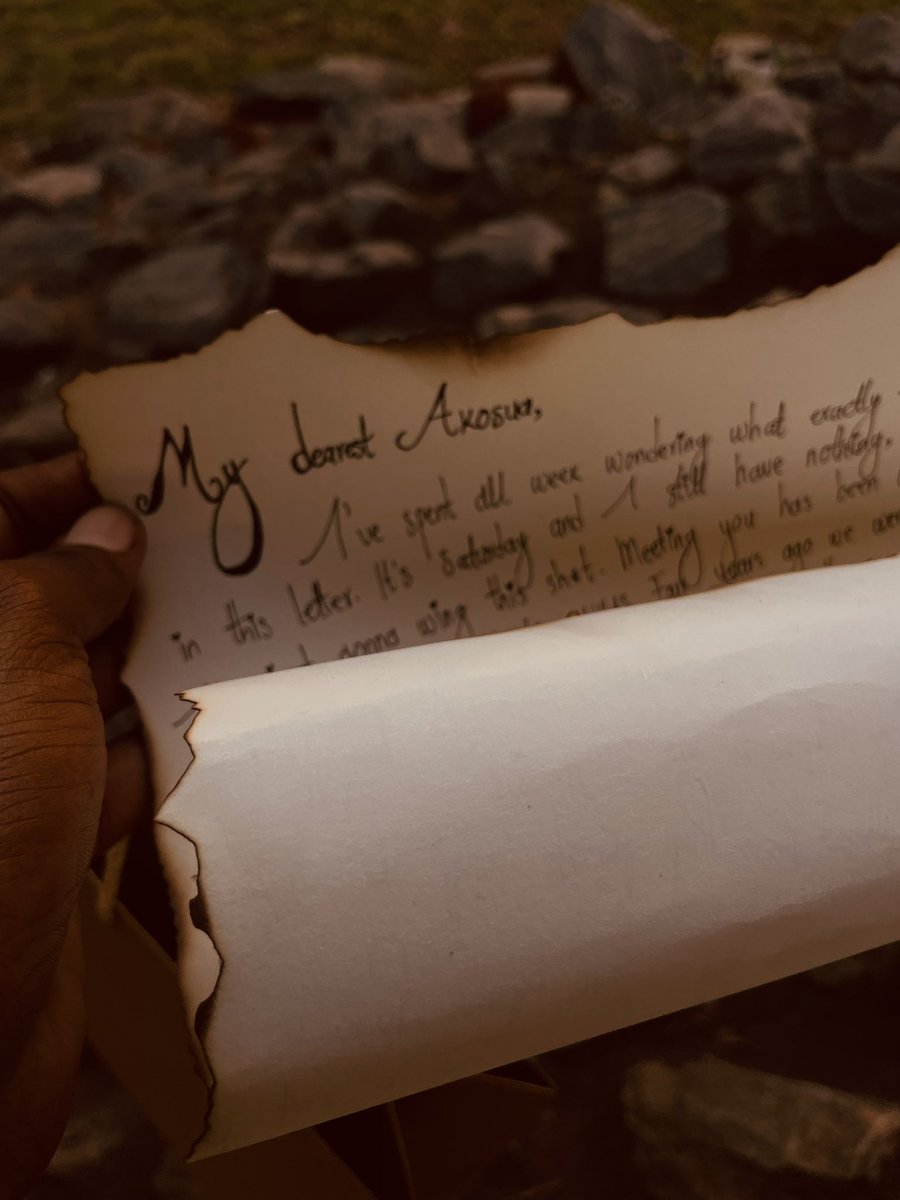 My dearest Akosua,
I've spent all week wondering what exactly
in this letter. It's Saturday and I still have nothing.
gonna wing this shot. Meeting you has been
years ago we